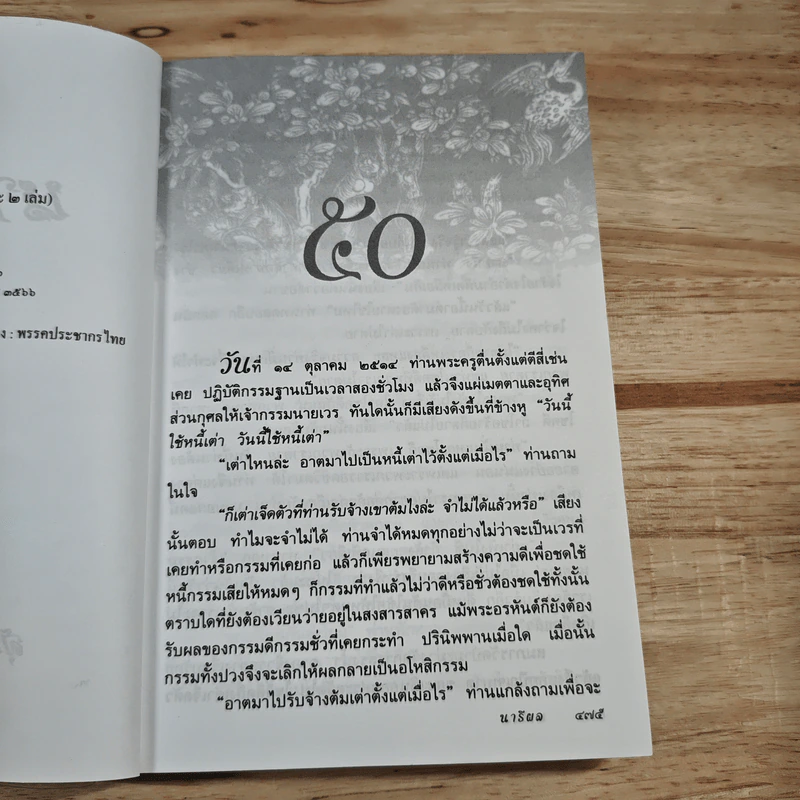 ๒ เล่ม)
๓๕๖๖
: พรรคประชากรไทย
๕๐
วันที่ ๑๔ ตุลาคม ๒๕๑๔ ท่านพระครูตื่นตั้งแต่ตีสี่เช่น
เคย ปฏิบัติกรรมฐานเป็นเวลาสองชั่วโมง แล้วจึงแผ่เมตตาและอุทิศ
ส่วนกุศลให้เจ้ากรรมนายเวร ทันใดนั้นก็มีเสียงดังขึ้นที่ข้างหู “วันนี้
ใช้หนี้เต่า วันนี้ใช้หนี้เต่า”
“เต่าไหนล่ะ อาตมาไปเป็นหนี้เต่าไว้ตั้งแต่เมื่อไร” ท่านถาม
ในใจ
“ก็เต่าเจ็ดตัวที่ท่านรับจ้างเขาต้มไงล่ะ จำไม่ได้แล้วหรือ” เสียง
นั้นตอบ ทำไมจะจำไม่ได้ ท่านจำได้หมดทุกอย่างไม่ว่าจะเป็นเวรที่
เคยทำหรือกรรมที่เคยก่อ แล้วก็เพียรพยายามสร้างความดีเพื่อชดใช้
หนี้กรรมเสียให้หมดๆ ก็กรรมที่ทำแล้วไม่ว่าดีหรือชั่วต้องชดใช้ทั้งนั้น
ตราบใดที่ยังต้องเวียนว่ายอยู่ในสงสารสาคร แม้พระอรหันต์ก็ยังต้อง
รับผลของกรรมดีกรรมชั่วที่เคยกระทำ ปรินิพพานเมื่อใด เมื่อนั้น
กรรมทั้งปวงจึงจะเลิกให้ผลกลายเป็นอโหสิกรรม
“อาตมาไปรับจ้างต้มเต่าตั้งแต่เมื่อไร” ท่านแกล้งถามเพื่อจะ
นารีผล ๔๗๕